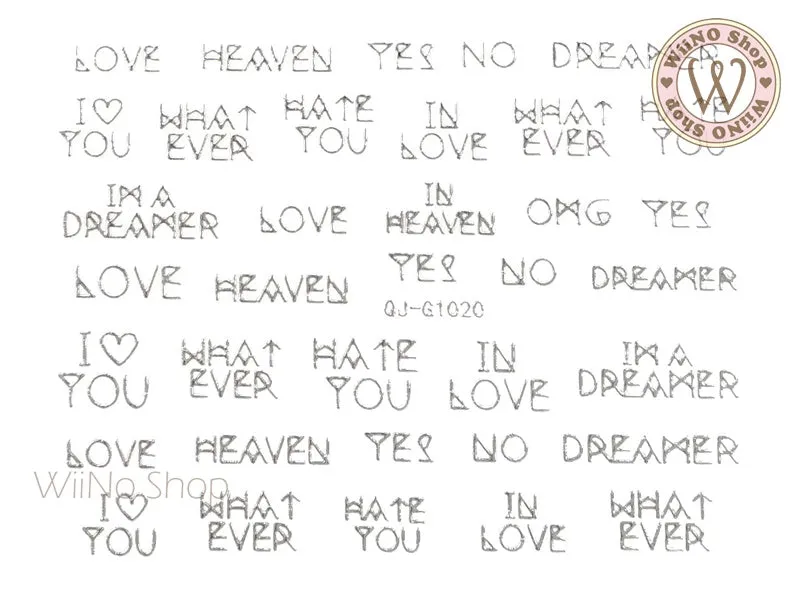 LOVE HEAVEN YES NO DREAMER
I ♡ YOU WHAT EVER HATE YOU IN LOVE WHAT EVER HATE YOU
IM A DREAMER LOVE IN HEAVEN OMG YES
LOVE HEAVEN YES NO DREAMER
QJ-G1020
I ♡ YOU WHAT EVER HATE YOU IN LOVE IM A DREAMER
LOVE HEAVEN YES NO DREAMER
I ♡ YOU WHAT EVER HATE YOU IN LOVE WHAT EVER
WiiNO Shop
W
WiiNO Shop
WiiNo Shop